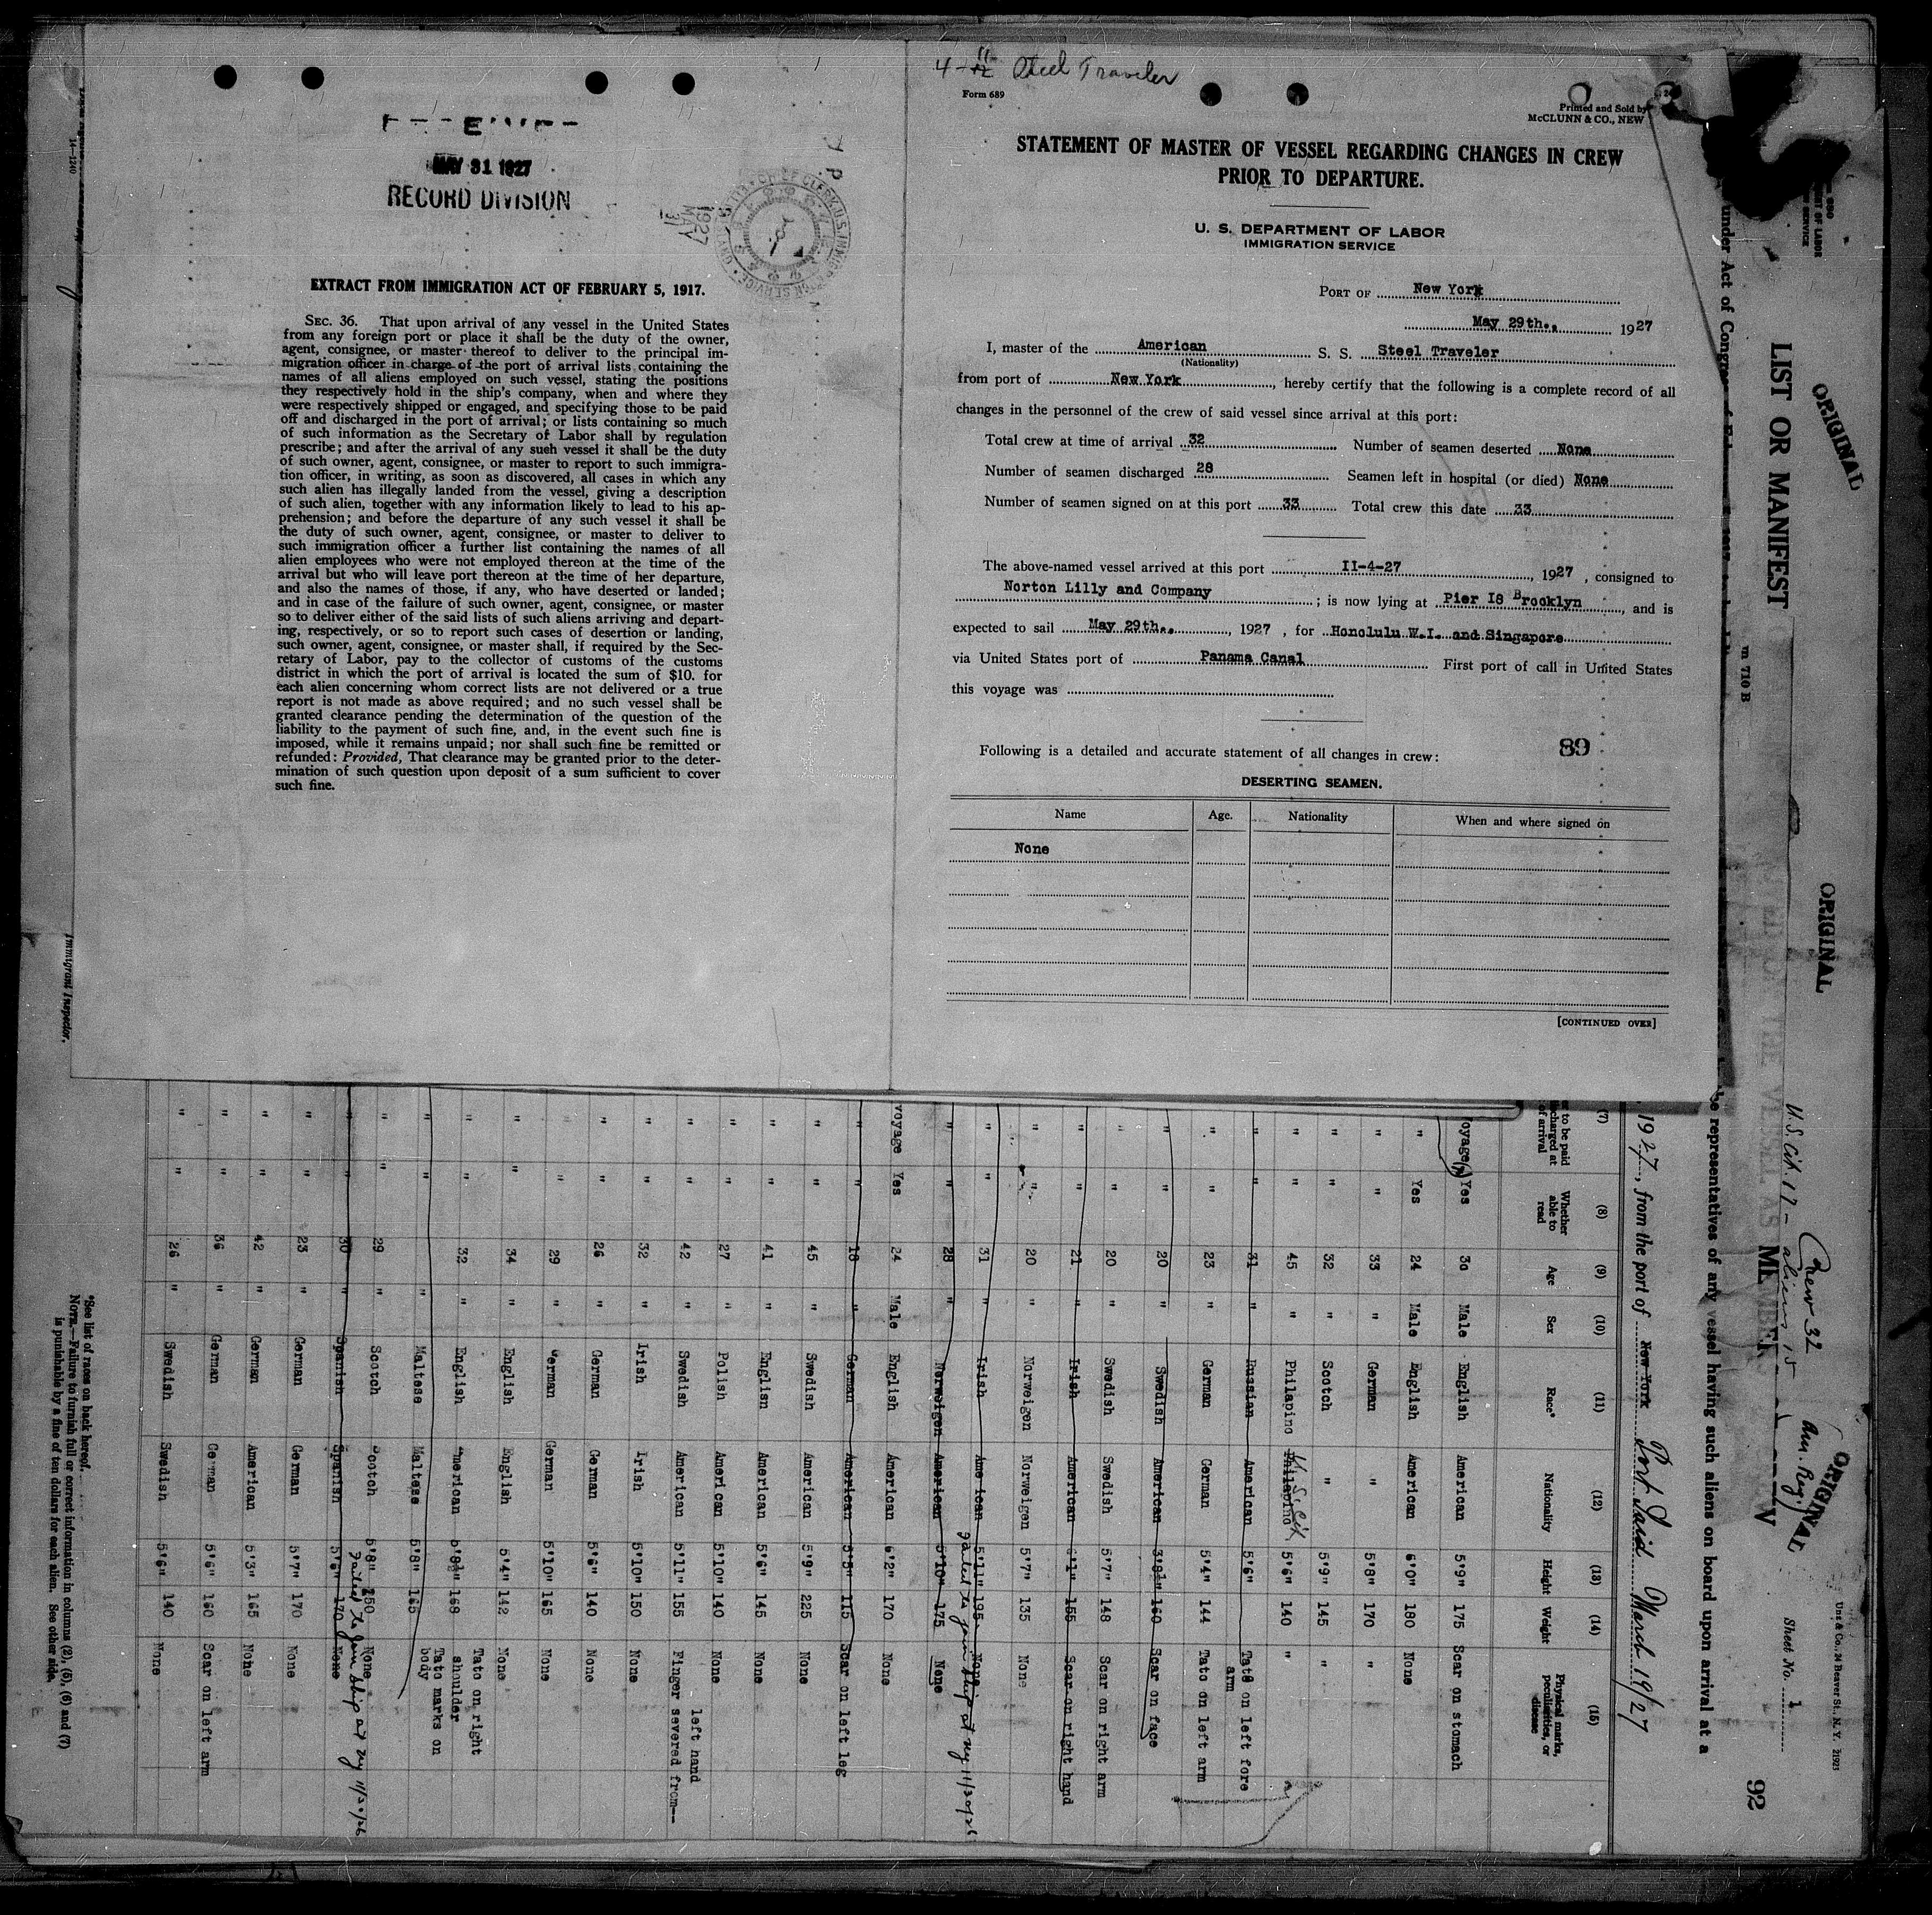 4-11 Steel Traveler
Form 689
Printed and Sold by
McCLUNN & CO., NEW
MAY 31 1927
RECORD DIVISION
1927
MAY
31
EXTRACT FROM IMMIGRATION ACT OF FEBRUARY 5, 1917.
SEC. 36. That upon arrival of any vessel in the United States
from any foreign port or place it shall be the duty of the owner,
agent, consignee, or master thereof to deliver to the principal im-
migration officer in charge of the port of arrival lists containing the
names of all aliens employed on such vessel, stating the positions
they respectively hold in the ship's company, when and where they
were respectively shipped or engaged, and specifying those to be paid
off and discharged in the port of arrival; or lists containing so much
of such information as the Secretary of Labor shall by regulation
prescribe; and after the arrival of any such vessel it shall be the duty
of such owner, agent, consignee, or master to report to such immigra-
tion officer, in writing, as soon as discovered, all cases in which any
such alien has illegally landed from the vessel, giving a description
of such alien, together with any information likely to lead to his ap-
prehension; and before the departure of any such vessel it shall be
the duty of such owner, agent, consignee, or master to deliver to
such immigration officer a further list containing the names of all
alien employees who were not employed thereon at the time of the
arrival but who will leave port thereon at the time of her departure,
and also the names of those, if any, who have deserted or landed;
and in case of the failure of such owner, agent, consignee, or master
so to deliver either of the said lists of such aliens arriving and depart-
ing, respectively, or so to report such cases of desertion or landing,
such owner, agent, consignee, or master shall, if required by the Sec-
retary of Labor, pay to the collector of customs of the customs
district in which the port of arrival is located the sum of $10. for
each alien concerning whom correct lists are not delivered or a true
report is not made as above required; and no such vessel shall be
granted clearance pending the determination of the question of the
liability to the payment of such fine, and, in the event such fine is
imposed, while it remains unpaid; nor shall such fine be remitted or
refunded: Provided, That clearance may be granted prior to the deter-
mination of such question upon deposit of a sum sufficient to cover
such fine.
STATEMENT OF MASTER OF VESSEL REGARDING CHANGES IN CREW
PRIOR TO DEPARTURE.
U. S. DEPARTMENT OF LABOR
IMMIGRATION SERVICE
PORT OF New York
May 29th., 1927
I, master of the American S. S. Steel Traveler
(Nationality)
from port of New York, hereby certify that the following is a complete record of all
changes in the personnel of the crew of said vessel since arrival at this port:
Total crew at time of arrival 32 Number of seamen deserted None
Number of seamen discharged 28 Seamen left in hospital (or died) None
Number of seamen signed on at this port 33 Total crew this date 33
The above-named vessel arrived at this port II-4-27, 1927, consigned to
Norton Lilly and Company; is now lying at Pier I8 Brooklyn, and is
expected to sail May 29th., 1927, for Honolulu W.I. and Singapore
via United States port of Panama Canal First port of call in United States
this voyage was
Following is a detailed and accurate statement of all changes in crew: 89
DESERTING SEAMEN.
Name Age. Nationality When and where signed on
None
[CONTINUED OVER]
14-1240
Immigrant Inspector.
ORIGINAL
ORIGINAL
ORIGINAL
LIST OR MANIFEST
under Act of Congre
m 710 B
U.S. Cit. 17 - aliens 15
Crew 32
Am. Reg.
Sheet No. 1
92
he representatives of any vessel having such aliens on board upon arrival at a
1927, from the port of New York Port Said March 19/27
(7) (8) (9) (10) (11) (12) (13) (14) (15)
Whether able to read Age Sex Race* Nationality Height Weight Physical marks, peculiarities, or disease
oyage Yes 30 Male English American 5'9" 175 Scar on stomach
" Yes 24 Male English American 6'0" 180 None
" " 33 " German " 5'8" 170 "
" " 32 " Scotch " 5'9" 145 "
" " 45 " Philapino Philapino U.S. Cit 5'6" 140 "
" " 31 " Russian American 5'6" Tato on left fore arm
" " 23 " German German 5'4" 144 Tato on left arm
" " 20 " Swedish American 160 Scar on face
" " 20 " Swedish Swedish 5'7" 148 Scar on right arm
" " 21 " Irish American 155 Scar on right hand
" " 20 " Norweigen Norweigen 5'7" 135 None
" " 31 " Irish American 5'11" 195 None
Failed to join ship at NY 11/30/26
" " 28 " Norweigen American 5'10" 175 None
voyage Yes 24 Male English American 6'2" 170 None
" " 18 " German American 5'5" 115 Scar on left leg
" " 45 " Swedish American 5'9" 225 None
" " 41 " English American 5'6" 145 None
" " 27 " Polish American 5'10" 140 None
" " 42 " Swedish American 5'11" 155 Finger severed from-- left hand
" " 32 " Irish Irish 5'10" 150 None
" " 26 " German German 5'6" 140 None
" 29 " German German 5'10" 165 None
" " 34 " English English 5'4" 142 None
" " 32 " English American 5'8½" 168 Tato on right shoulder
" " " Maltese Maltese 5'8" 165 Tato marks on body
" " 29 " Scotch Scotch 5'8" 150 None
Failed to join ship at NY 11/30/26
" " 30 " Spanish Spanish 5'6" 170 None
" " 23 " German German 5'7" 170 None
" " 42 " German American 5'3" 165 None
" " 36 " German German 5'6" 160 Scar on left arm
" " 26 " Swedish Swedish 5'6" 140 None
*See list of races on back hereof.
NOTE.—Failure to furnish full or correct information in columns (2), (5), (6) and (7)
is punishable by a fine of ten dollars for each alien. See other side.